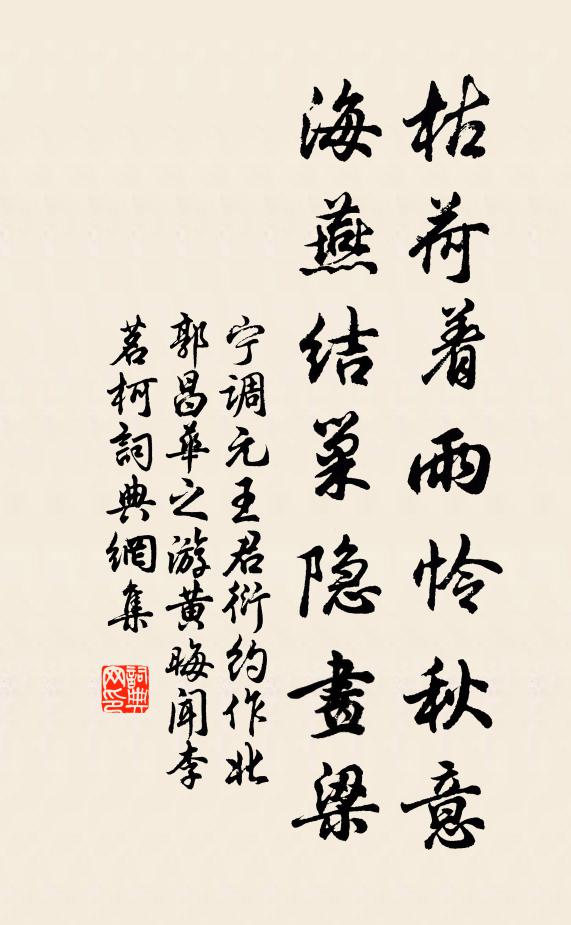 枯荷着雨怜秋意
海燕结巢隐畫梁
宁调元王君衍约作北
郭昌華之游黄晦闻李
茗柯詞典網集
詞典网印